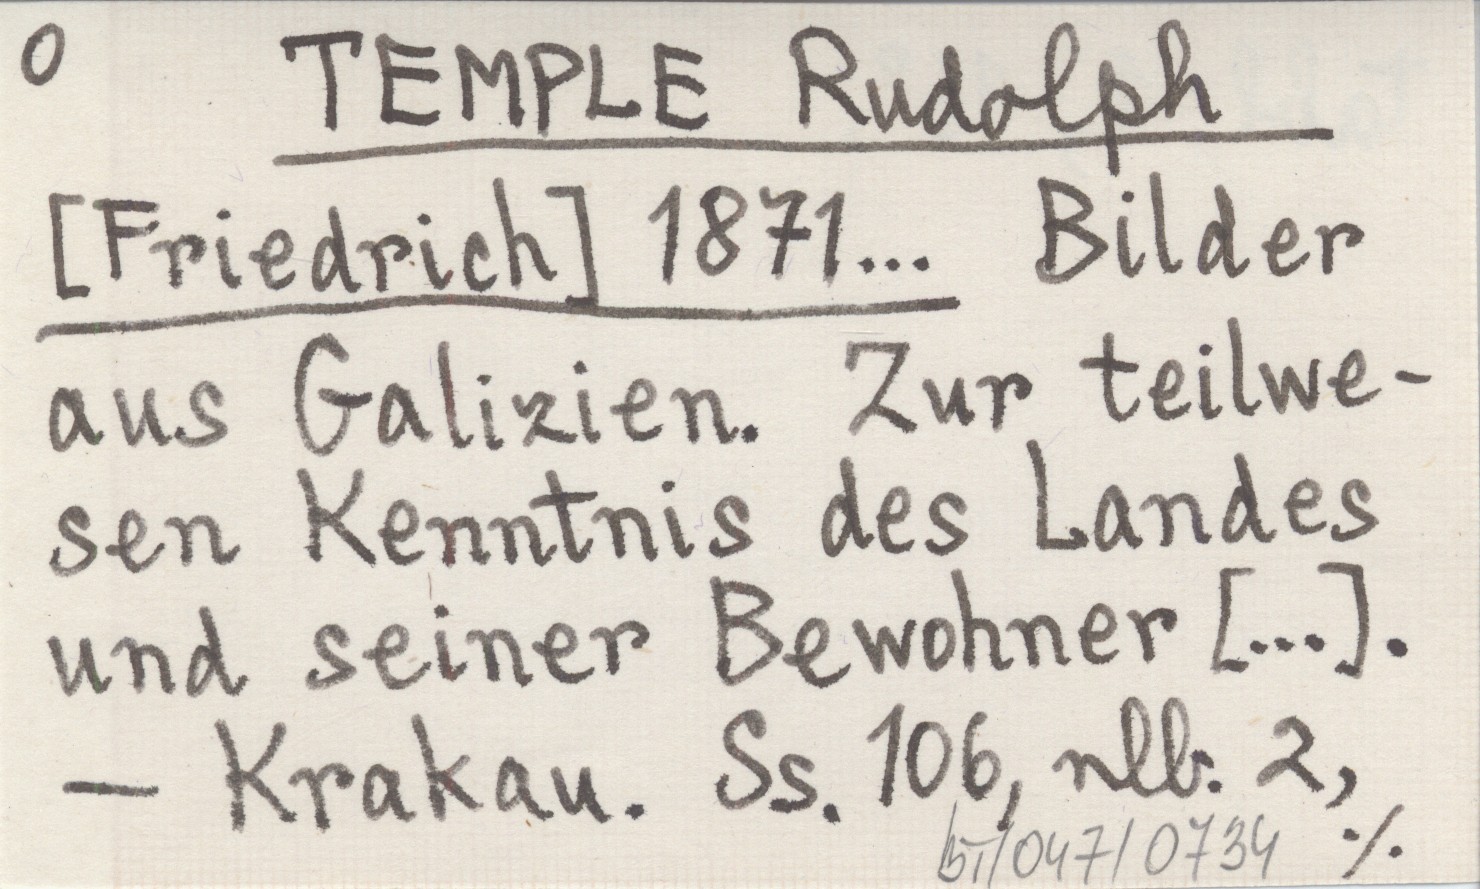 0 TEMPLE Rudolph
[Friedrich] 1871... Bilder
aus Galizien. Zur teilwe-
sen Kenntnis des Landes
und seiner Bewohner [...].
— Krakau. Ss. 106, nlb. 2,
/047/0734 ·/.